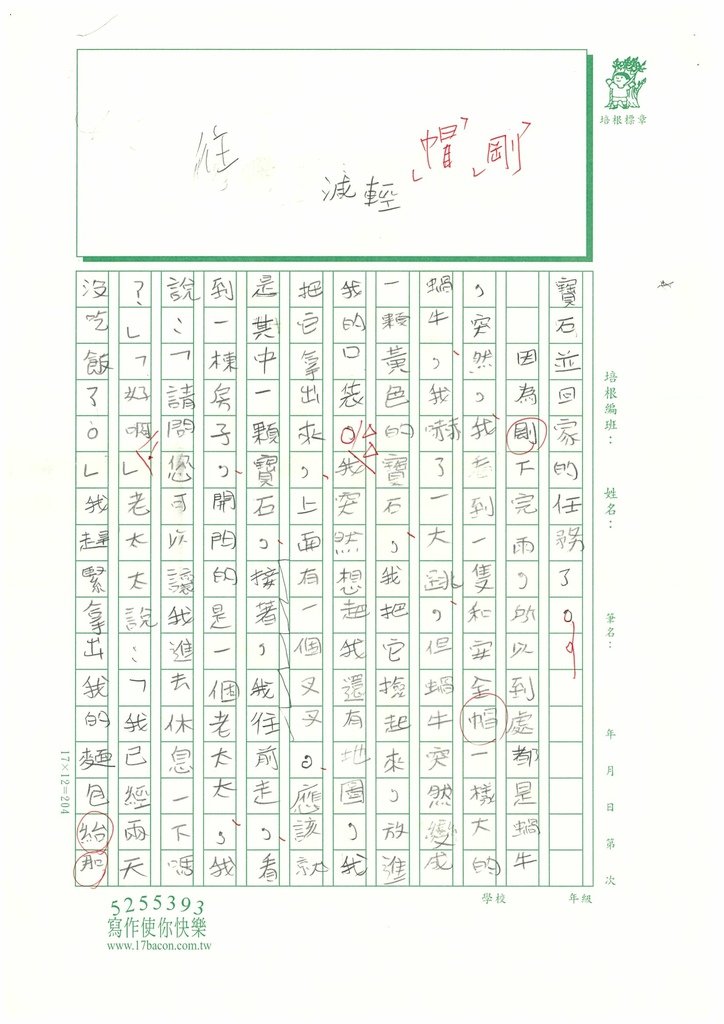 往
減輕
「帽」「剛」
培根標章
寶石並回家的任務了。
因為剛下完雨,所以到處都是蝸牛
,突然,我看到一隻和安全帽一樣大的
蝸牛,我嚇了一大跳,但蝸牛突然變成
一顆黃色的寶石,我把它撿起來,放進
我的口袋。我突然想起我還有地圖,我
把它拿出來,上面有一個叉叉。應該就
是其中一顆寶石,接著,我往前走,看
到一棟房子,開門的是一個老太太,我
說:「請問您可以讓我進去休息一下嗎
?」「好啊」老太太說:「我已經兩天
沒吃飯了。」我趕緊拿出我的麵包給那
培根編班:
姓名:
筆名:
年 月 日 第 次
17×12=204
學校
年級
5255393
寫作使你快樂
www.17bacon.com.tw